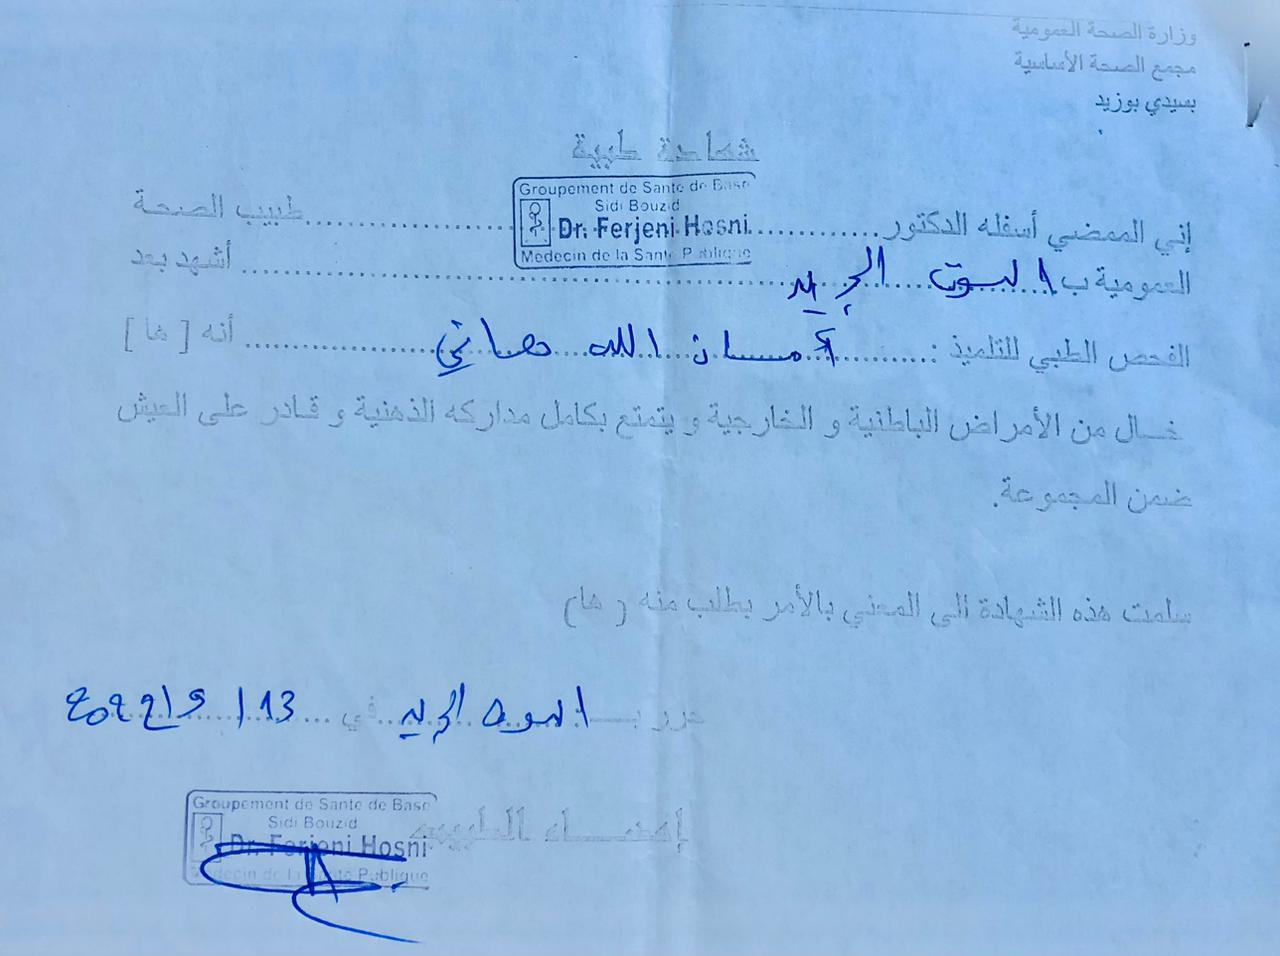 وزارة الصحة العمومية
مجمع الصحة الأساسية
بسيدي بوزيد
شهادة طبية
Groupement de Sante de Base
Sidi Bouzid
Dr. Ferjeni Hosni
Medecin de la Sante Publique
إني الممضي أسفله الدكتور ........................ طبيب الصحة
العمومية ب السوق الجديد ........................ أشهد بعد
الفحص الطبي للتلميذ : ......... أمان الله حماني ......... أنه [ ها ]
خال من الأمراض الباطنية و الخارجية و يتمتع بكامل مداركه الذهنية و قادر على العيش
ضمن المجموعة.
سلمت هذه الشهادة الى المعني بالأمر بطلب منه ( ها)
حرر بـ السوق الجديد في 13 / 9 /
إمضاء الطبيب
Groupement de Sante de Base
Sidi Bouzid
Dr. Ferjeni Hosni
Medecin de la Sante Publique